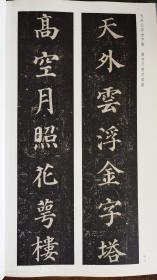 天外雲浮金字塔
高空月照花萼樓